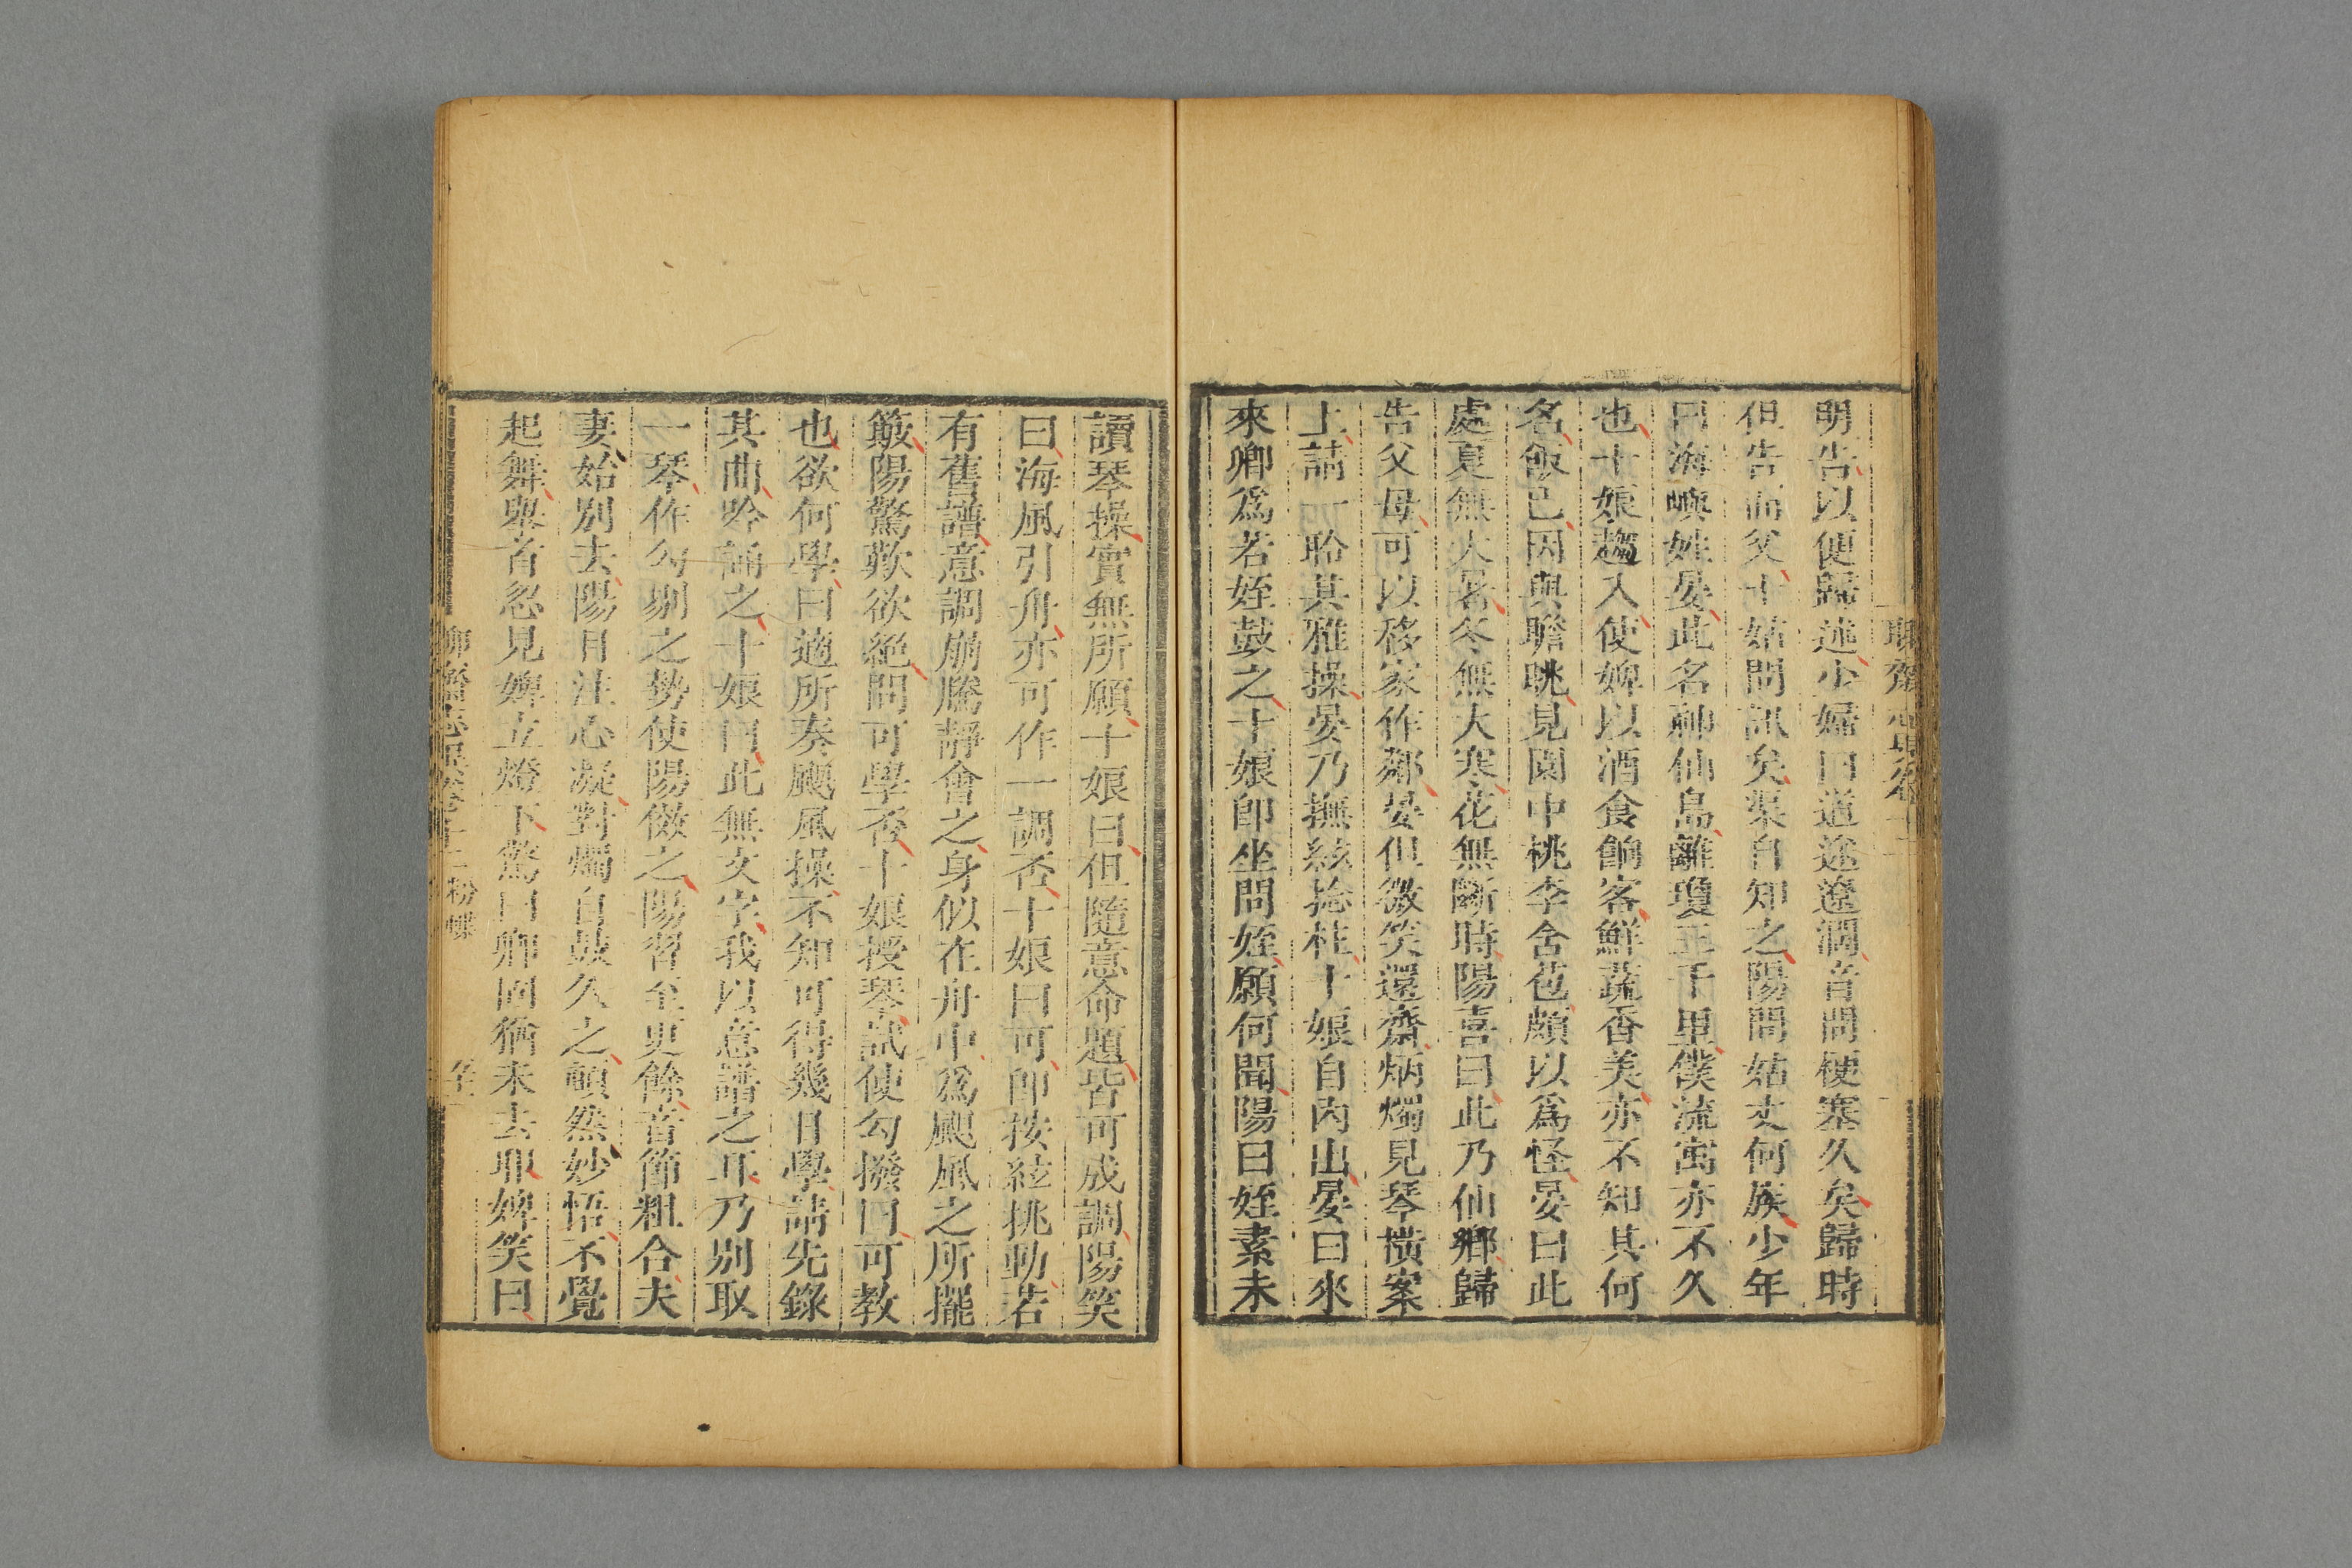 明告以便歸述少婦曰道途遼濶音問梗塞久矣歸時
但告而父十姑問訊矣渠自知之陽問姑丈何族少年
曰海嶼姓晏此名神仙島離瓊三千里僕流寓亦不久
也十娘趨入使婢以酒食餉客鮮蔬香美亦不知其何
名飯已因與瞻眺見園中桃李含苞頗以爲怪晏曰此
處夏無大暑冬無大寒花無斷時陽喜曰此乃仙鄉歸
告父母可以移家作鄰晏但微笑還齋炳燭見琴橫案
上請一聆其雅操晏乃撫絃捻柱十娘自內出晏曰來
來卿爲若姪鼓之十娘卽坐問姪願何聞陽曰姪素未
讀琴操實無所願十娘曰但隨意命題皆可成調陽笑
曰海風引舟亦可作一調否十娘曰可卽按絃挑動若
有舊譜意調崩騰靜會之身似在舟中爲颶風之所擺
簸陽驚歎欲絕問可學否十娘授琴試使勾撥曰可教
也欲何學曰適所奏颶風操不知可得幾日學請先錄
其曲吟誦之十娘曰此無文字我以意譜之耳乃別取
一琴作勾剔之勢使陽傚之陽習至更餘音節粗合夫
妻始別去陽目注心凝對燭自鼓久之頓然妙悟不覺
起舞舉首忽見婢立燈下驚曰卿固猶未去耶婢笑曰
聊齋志異卷十二 粉蝶